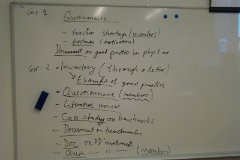 Gr. 1 Questionnaires
- teacher shortage (members)
(motivation)
Document on good practice in physics
Gr. 2 - Inventory (through a letter)
Examples of good practice
- Questionnaire (members)
- Literature
- Case study on benchmarks
- Document on benchmarks
- Doc on
- Quest (members)